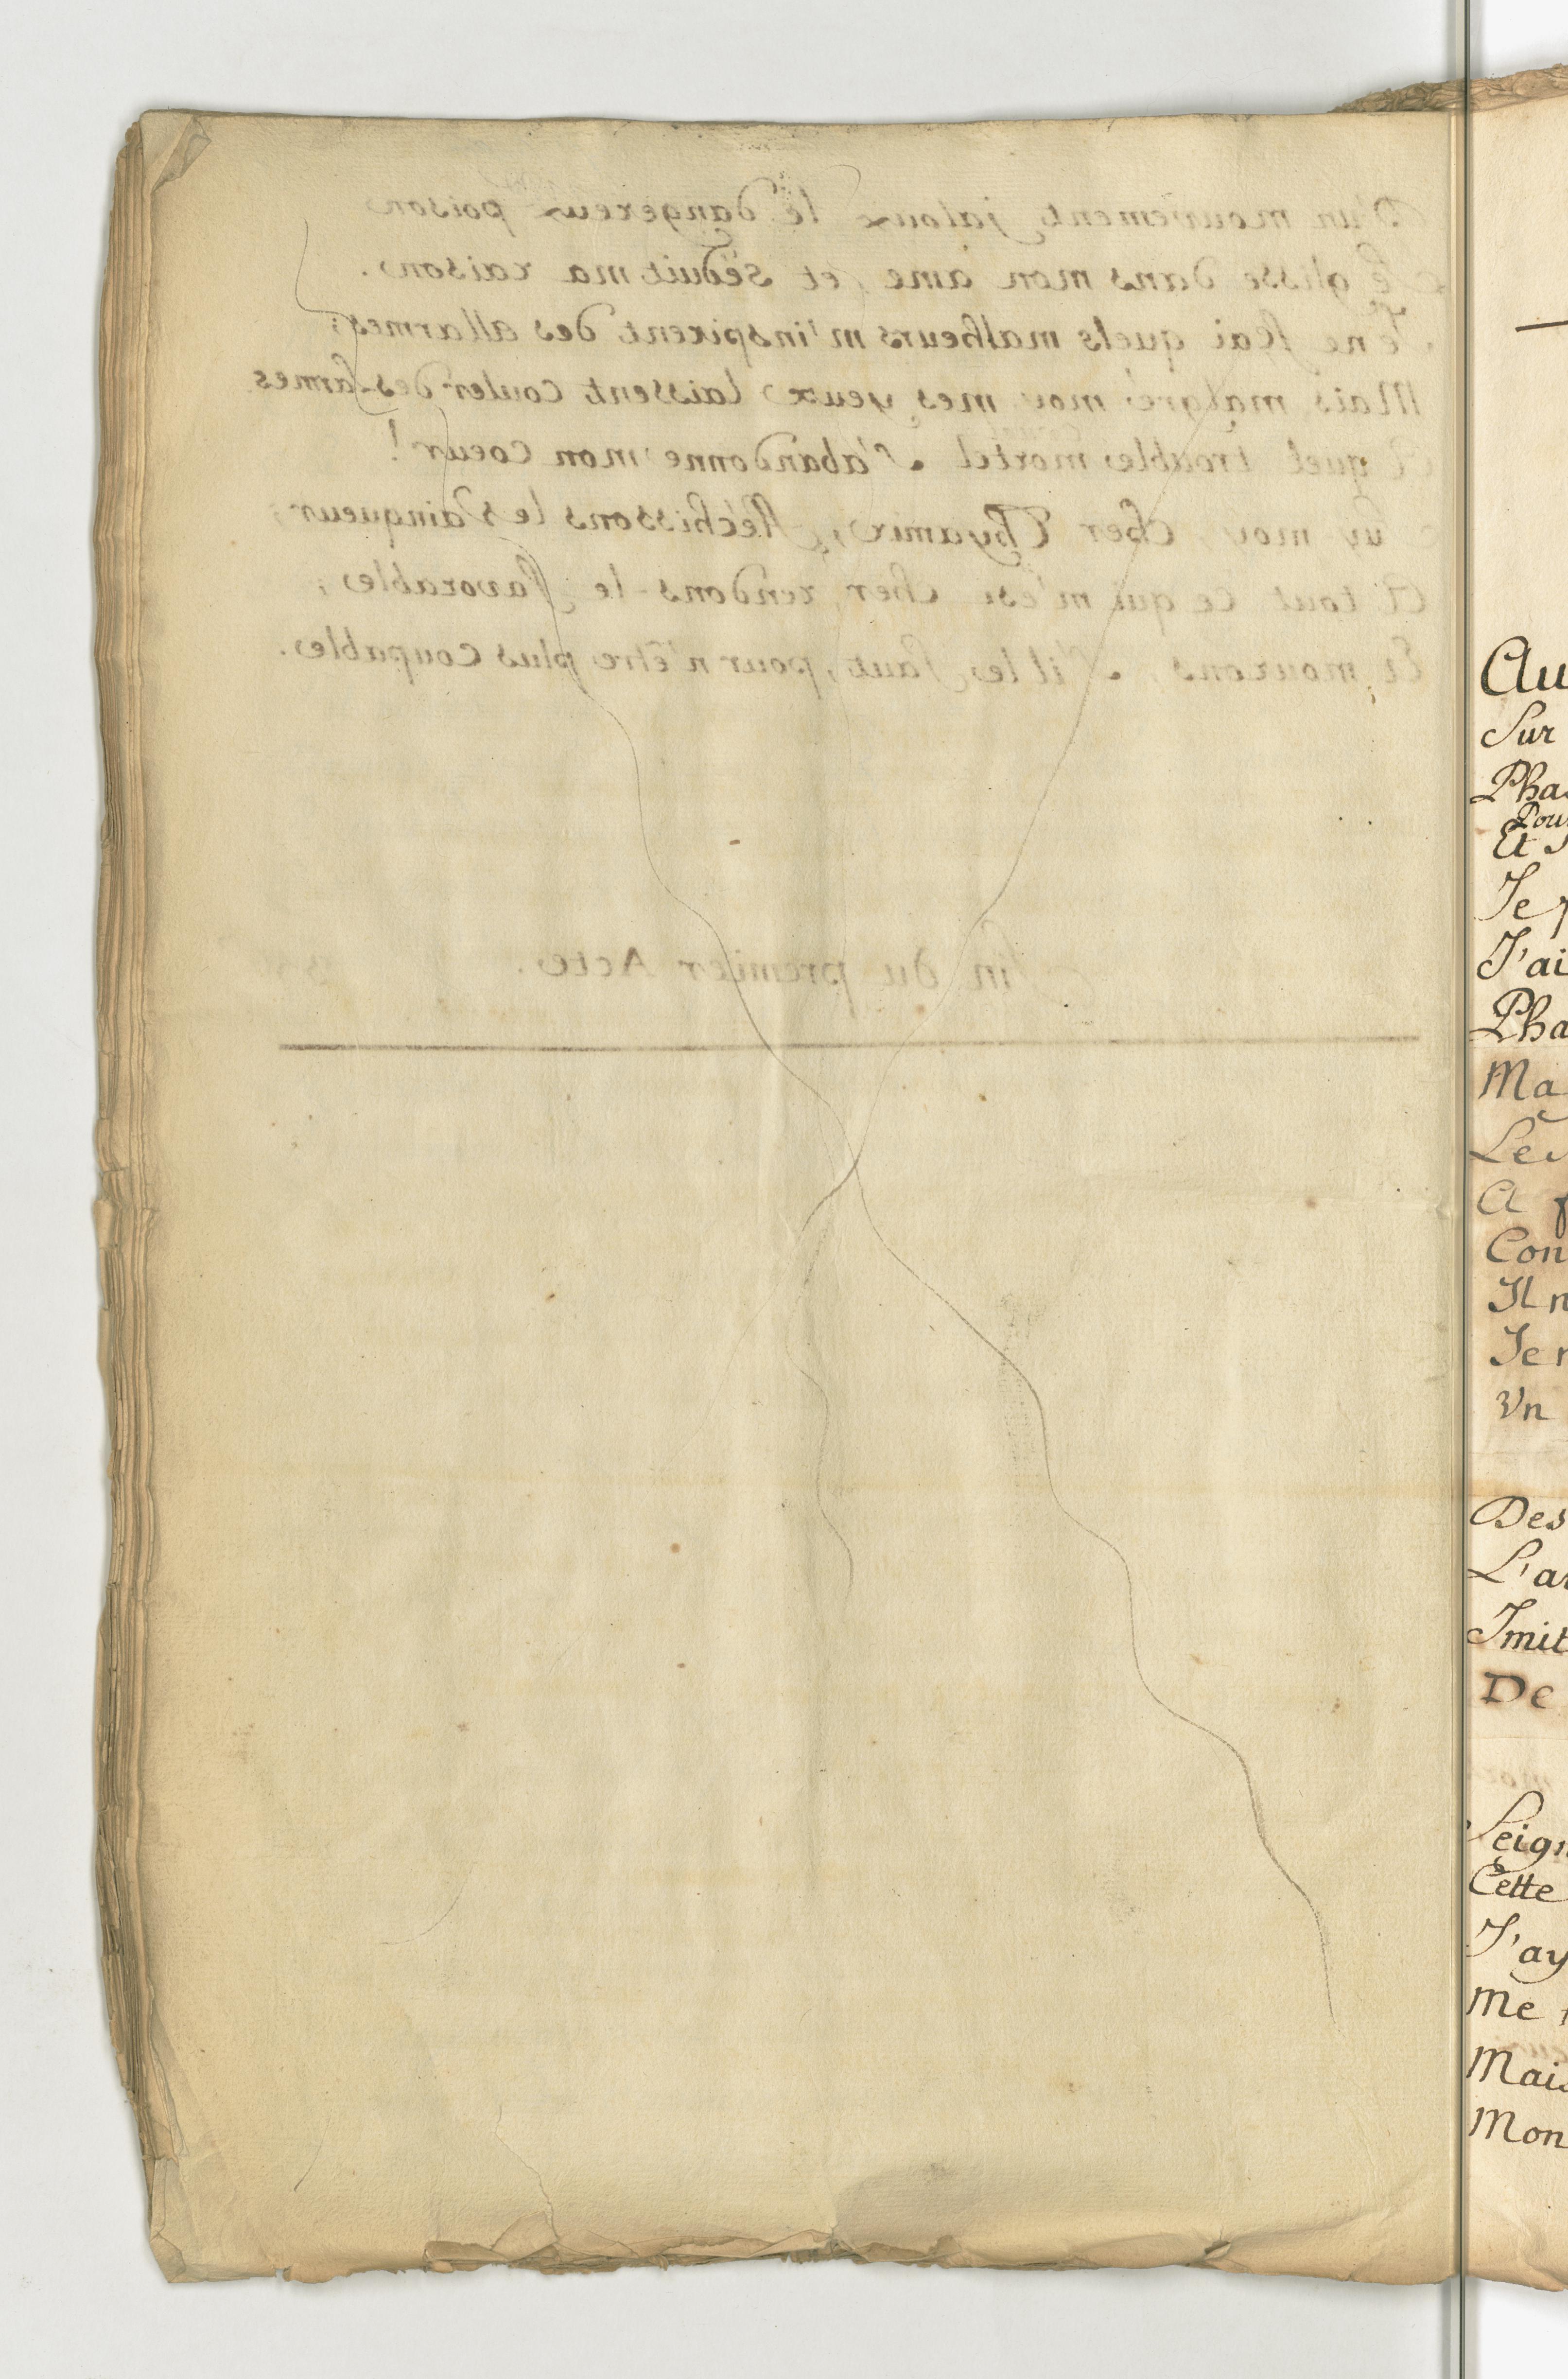 D'un mouvement jaloux le dangereux poison
Se glisse dans mon ame, et séduit ma raison.
Je ne sçai quels malheurs m'inspirent des allarmes;
Mais malgré moy mes yeux laissent couler des larmes
A quel trouble mortel s'abandonne mon coeur!
Suy moy, cher Thyamir, fléchissons le Vainqueur;
A tout ce qui m'est cher rendons-le favorable;
Et mourons, s'il le faut, pour n'être plus coupable.
fin du premier Acte.
Au
Sur
Pha
Pou
Et
Je
J'ai
Pha
Ma
Les
A
Con
Il n
Je
Un
Des
L'a
Imit
De
Seign
Cette
J'ay
Me
Mais
Mon